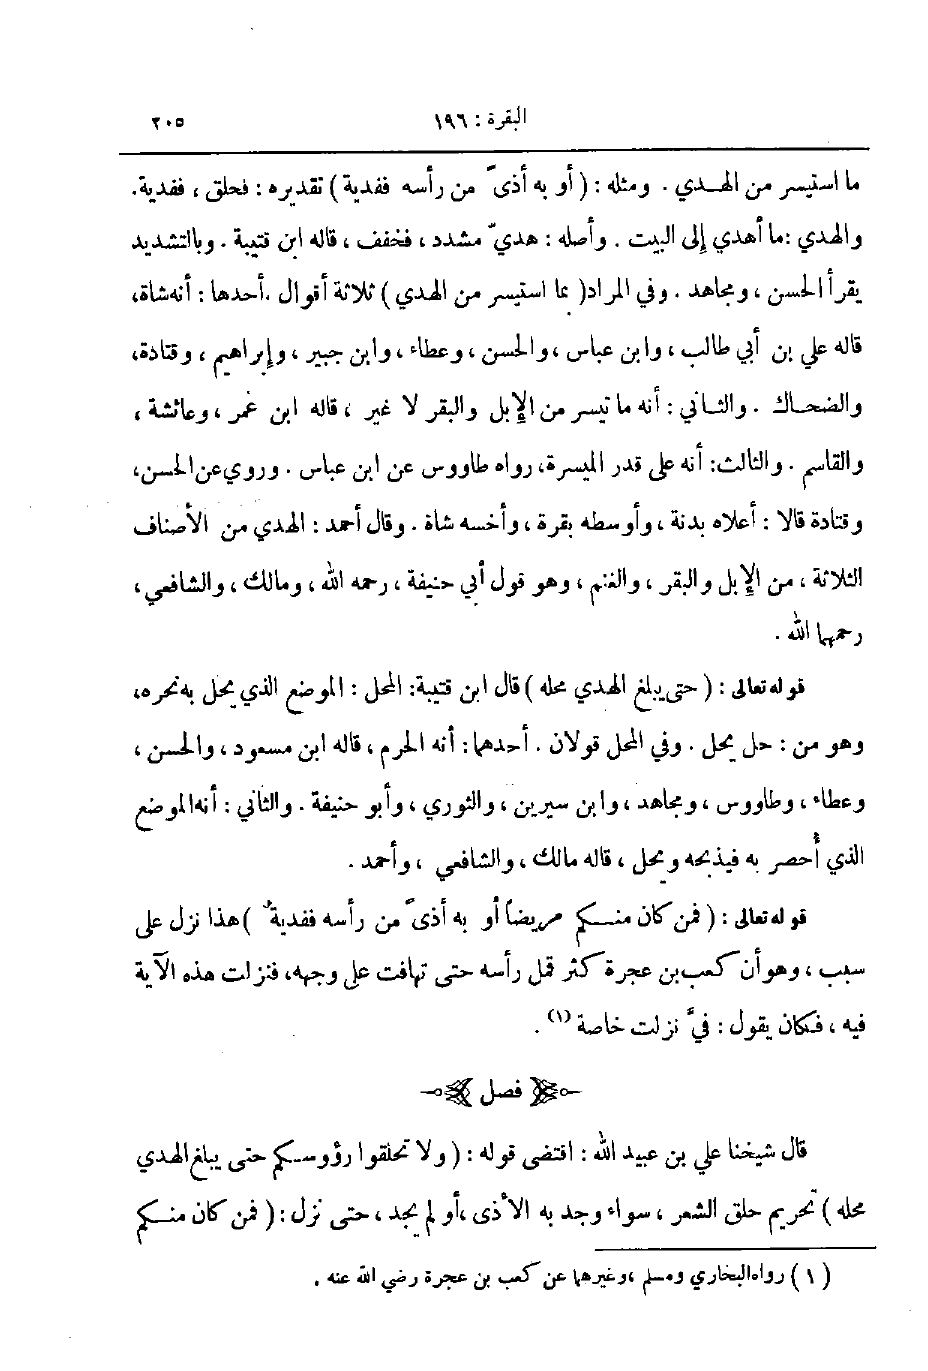 البقرة : ١٩٦ ٢٠٥
ما استيسر من الهـدي . ومثله : ( أو به أذىً من رأسه ففدية ) تقديره : فحلق ، ففدية.
والهدي : ما أهدي إلى البيت . وأصله : هديّ مشدد ، فخفف ، قاله ابن قتيبة . وباالتشديد
يقرأ الحسن ، ومجاهد . وفي المراد ( بما استيسر من الهدي ) ثلاثة أقوال . أحدها : أنه شاة،
قاله علي بن أبي طالب ، وابن عباس ، والحسن ، وعطاء ، وابن جبير ، وإبراهيم ، وقتادة،
والضحاك . والثاني : أنه ما تيسر من الإبل والبقر لا غير ، قاله ابن عمر ، وعائشة ،
والقاسم . والثالث : أنه على قدر الميسرة، رواه طاووس عن ابن عباس . وروي عن الحسن،
وقتادة قالا : أعلاه بدنة ، وأوسطه بقرة ، وأخسه شاة . وقال أحمد : الهدي من الأصناف
الثلاثة ، من الإبل والبقر ، والغنم ، وهو قول أبي حنيفة ، رحمه الله ، ومالك ، والشافعي ،
رحمهما الله .
قوله تعالى : ( حتى يبلغ الهدي محله ) قال ابن قتيبة: المحل : الموضع الذي يحل به نحره،
وهو من : حل يحل . وفي المحل قولان . أحدهما : أنه الحرم ، قاله ابن مسعود ، والحسن ،
وعطاء ، وطاووس ، ومجاهد ، وابن سيرين ، والثوري ، وأبو حنيفة . والثاني : أنه الموضع
الذي أُحصر به فيذبحه ويحل ، قاله مالك ، والشافعي ، وأحمد .
قوله تعالى : ( فمن كان منكم مريضاً أو به أذىً من رأسه ففديةٌ ) هذا نزل على
سبب ، وهو أن كعب بن عجرة كثر قمل رأسه حتى تهافت على وجهه، فنزلت هذه الآية
فيه ، فكان يقول : فيَّ نزلت خاصة (١) .
فصل
قال شيخنا علي بن عبيد الله : اقتضى قوله : ( ولا تحلقوا رؤوسكم حتى يبلغ الهدي
محله ) تحريم حلق الشعر ، سواء وجد به الأذى ، أو لم يجد ، حتى نزل : ( فمن كان منكم
( ١ ) رواه البخاري ومسلم ، وغيرهما عن كعب بن عجرة رضي الله عنه .